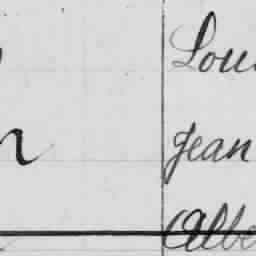 Lou
Jean
Albe